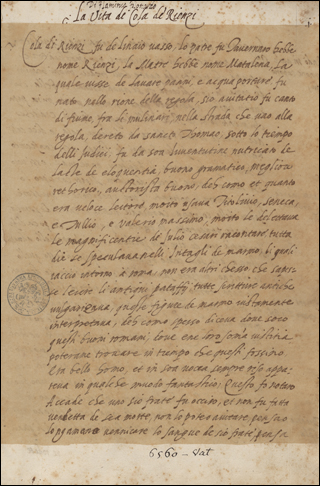 La Vita de Cola de Rienzi
Cola di Rienzi fu de linaio vasso, lo patre fu Tavernaro hebbe
nome Rienzi, la Matre hebbe nome Matalena, La
quale visse de lavare panni, e acqua portare fu
nato nello rione della regola, sio avitatio fu canto
di fiume, fra li mulinari, nella strada che vao alla
regola, dereto da sancto Tomao, sotto lo tempo
delli Judiei, fu da soa Iuventutine nutricato de
latte de eloquentia, buono gramatico, megliore
rethorico, autorista buono, deh como et quanto
era veloce lectore, moito usava Titolivio, seneca,
e Tullio, e Valerio massimo, moito lo delectava
le magnificentie de Julio cesari raccontare, tutta
die se speculava nelli intagli de marmo, li quali
iaccio intorno a roma, non era altri che esso che sapesse
leiere li antiqui pataffi, tutte scritture antiche
vulgarizava, quesse figure de marmo iustamente
interpretava, deh como spesso diceva, dove sono
quessi buoni romani, dove ene loro somma iustitia
poterame trovare in tempo che quessi fossino
Era bello homo, et in soa vocca sempre riso appa-
reva in qualche muodo fantastico, Questo fo notaro
Accade che uno sio frate fu occiso, et non fu fatta
vendetta de sea morte, non lo poteo aiutare, penzao
longamano vennicare lo sangue de sio frate, penza
6560 - Vat